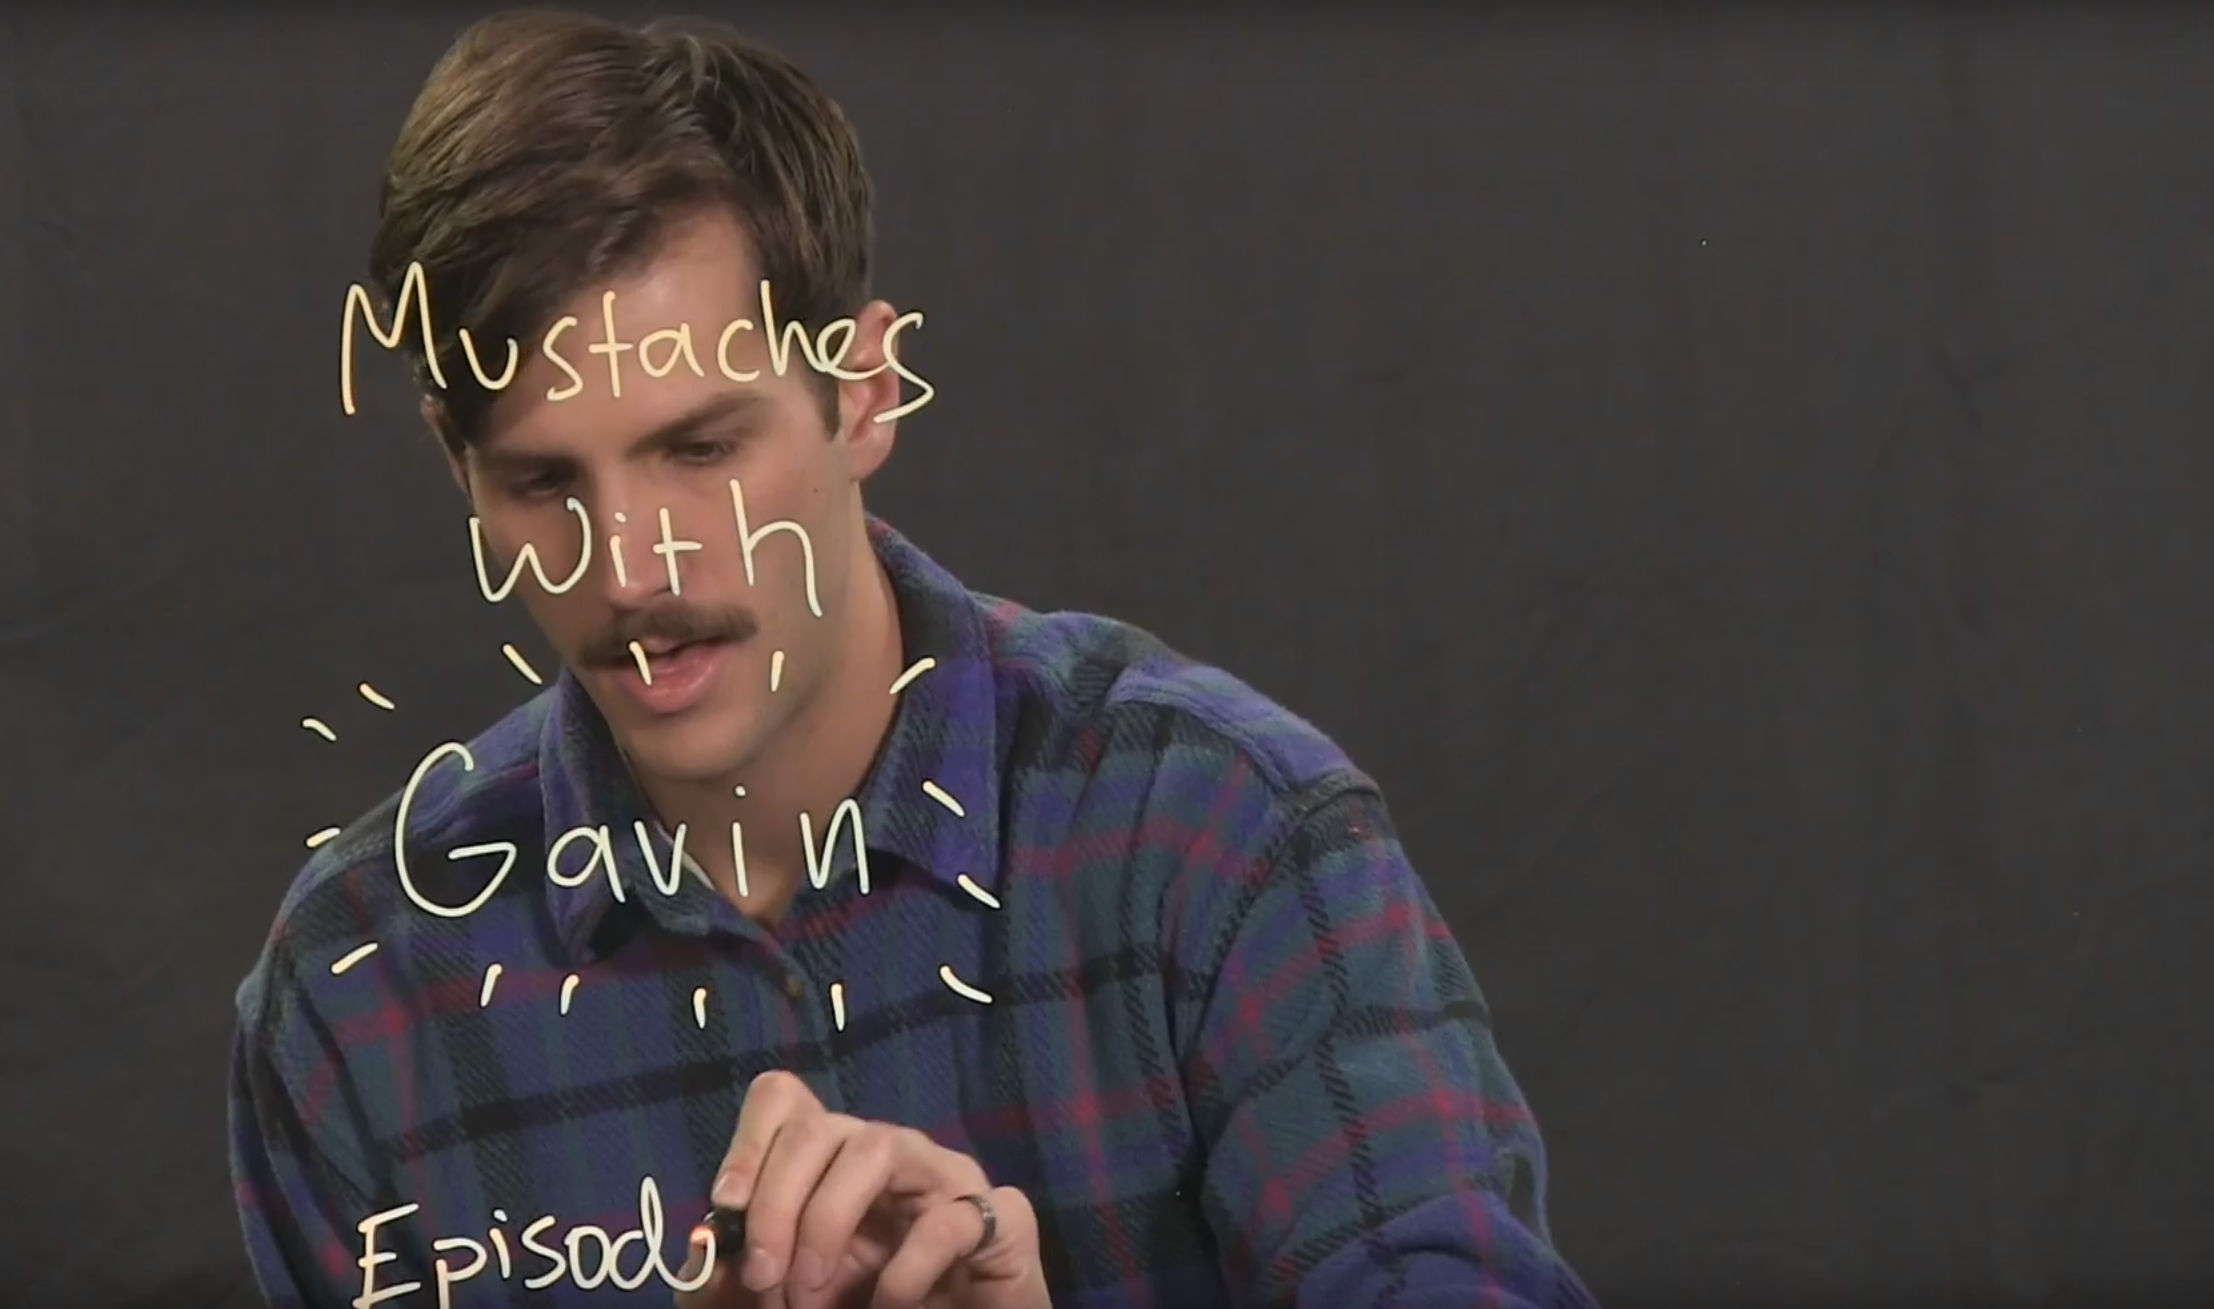 Mustaches
with
Gavin
Episod